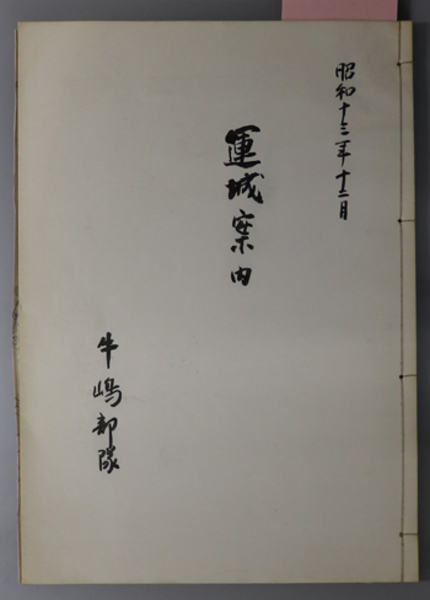 昭和十三年十二月
運城案内
牛嶋部隊